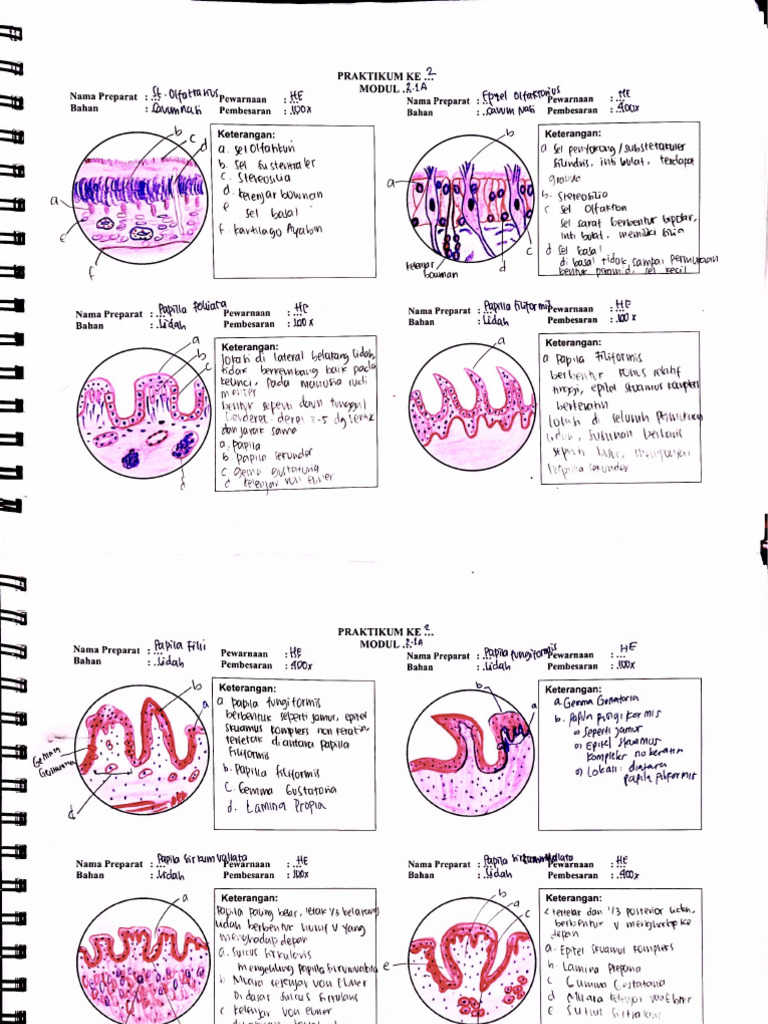 PRAKTIKUM KE 2
MODUL 2.1A
Nama Preparat : St. Olfaktorius Pewarnaan : HE
Bahan : Cavum Nasi Pembesaran : 100x
b
c
d
a
e
f
Keterangan:
a. sel Olfaktori
b. Sel Sustentakuler
c. Stereosilia
d. kelenjar bowman
e
sel basal
f. kartilago
Nama Preparat : Epitel Olfaktorius Pewarnaan : HE
Bahan : Cavum Nasi Pembesaran : 400x
b
a
c
d
kelenjar
bowman
Keterangan:
a sel penyokong/
silindris, inti bulat, terdapat
b. Stereosilia
c sel Olfaktori
sel saraf berbentuk bipolar,
inti bulat, memiliki silia
d sel basal
di basal tidak sampai permukaan
bentuk piramid, sel kecil
Nama Preparat : Papilla foliata Pewarnaan : HE
Bahan : Lidah Pembesaran : 100x
a
b
c
d
Keterangan:
lokasi di lateral belakang lidah,
tidak berkembang baik pada
pada manusia rudi
menter
bentuk seperti daun tunggal
berderet-deret 3-5 dg
dan jarak sama
a. papila
b papila sekunder
c Gema Gustatoria
d kelenjar von Ebner
Nama Preparat : Papilla filiformis Pewarnaan : HE
Bahan : Lidah Pembesaran : 100x
a
Keterangan:
a Papila Filiformis
berbentuk relatif
tinggi, epitel skuamus kompleks
berkeratin
di seluruh permukaan
lidah, susunan
seperti
Papila sekunder
PRAKTIKUM KE 2
MODUL 2.1A
Nama Preparat : Papila Fili Pewarnaan : HE
Bahan : Lidah Pembesaran : 400x
b
a
Gemma
d
Keterangan:
a papila fungiformis
berbentuk seperti jamur, epitel
skuamus kompleks non keratin
terletak di antara papilla
filiformis
b. Papilla filiformis
C. Gemma Gustatoria
d. Lamina Propia
Nama Preparat : Papila fungiformis Pewarnaan : HE
Bahan : Lidah Pembesaran : 100x
b
a
Keterangan:
a. Gemma Gustatoria
b. papila fungiformis
o) seperti jamur
o) Epitel skuamus
kompleks no keratin
o) Lokasi : diantara
papila filiformis
Nama Preparat : Papila Sirkumvallata Pewarnaan : HE
Bahan : Lidah Pembesaran : 100x
a
Keterangan:
Papila paling besar, letak 1/3 belakang
lidah berbentuk huruf V yang
menghadap depan
a. Sulcus Sirkularis
mengelilingi papilla sirkumvalata
b Muara kelenjar von Ebner
Di dasar sulcus sirkularis
c kelenjar von Ebner
Nama Preparat : Papila Pewarnaan : HE
Bahan : Lidah Pembesaran : 400x
b
a
c
e
Keterangan:
terletak dari 1/3 posterior lidah,
berbentuk V menghadap ke
depan
a. Epitel skuamus kompleks
b. Lamina
c
d Muara kelenjar von Ebner
e